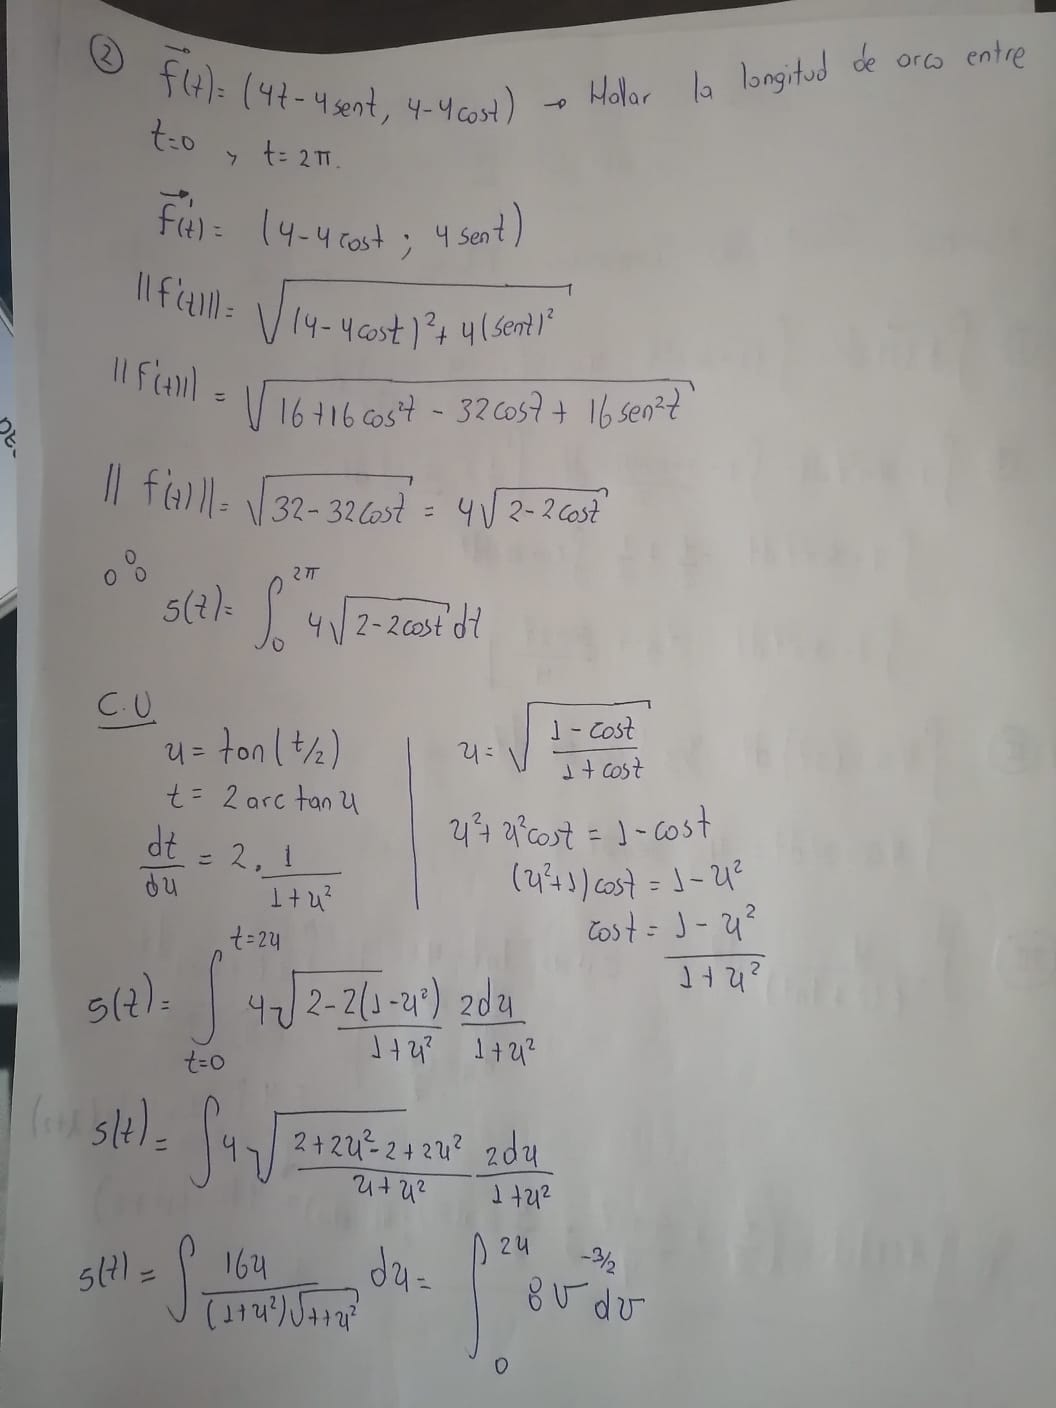 ② f⃗(t)= (4t-4sent, 4-4cost) → Hallar la longitud de arco entre
t=0 y t= 2π.
f⃗'(t)= (4-4cost ; 4 sent)
||f'(t)||= √((4-4cost)²+ 4(sent)²)
||f'(t)|| = √(16+16cos²t - 32cost + 16sen²t)
|| f'(t)||= √(32-32cost) = 4√(2-2cost)
∴ s(t)= ∫₀^2π 4√(2-2cost) dt
C.U
u= tan(t/2)
t= 2 arc tan u
dt/du = 2. 1/(1+u²)
u= √((1-cost)/(1+cost))
u²+u²cost = 1-cost
(u²+1)cost = 1-u²
cost = (1-u²)/(1+u²)
s(t)= ∫_{t=0}^{t=24} 4√(2-2(1-u²)/(1+u²)) 2du/(1+u²)
s(t)= ∫4√((2+2u²-2+2u²)/(u+u²)) 2du/(1+u²)
s(t) = ∫ 16u/((1+u²)√(1+u²)) du = ∫₀^24 8v^(-3/2) dv